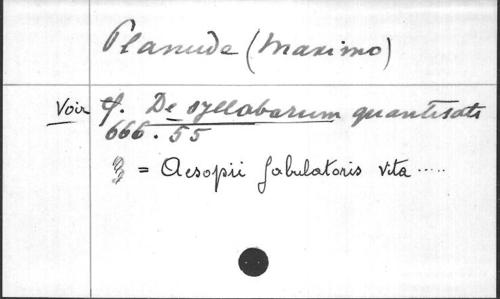 Planude (Maximo)
Voir f. De syllabarum quantitate
666.55
= Aesopii fabulatoris vita .....